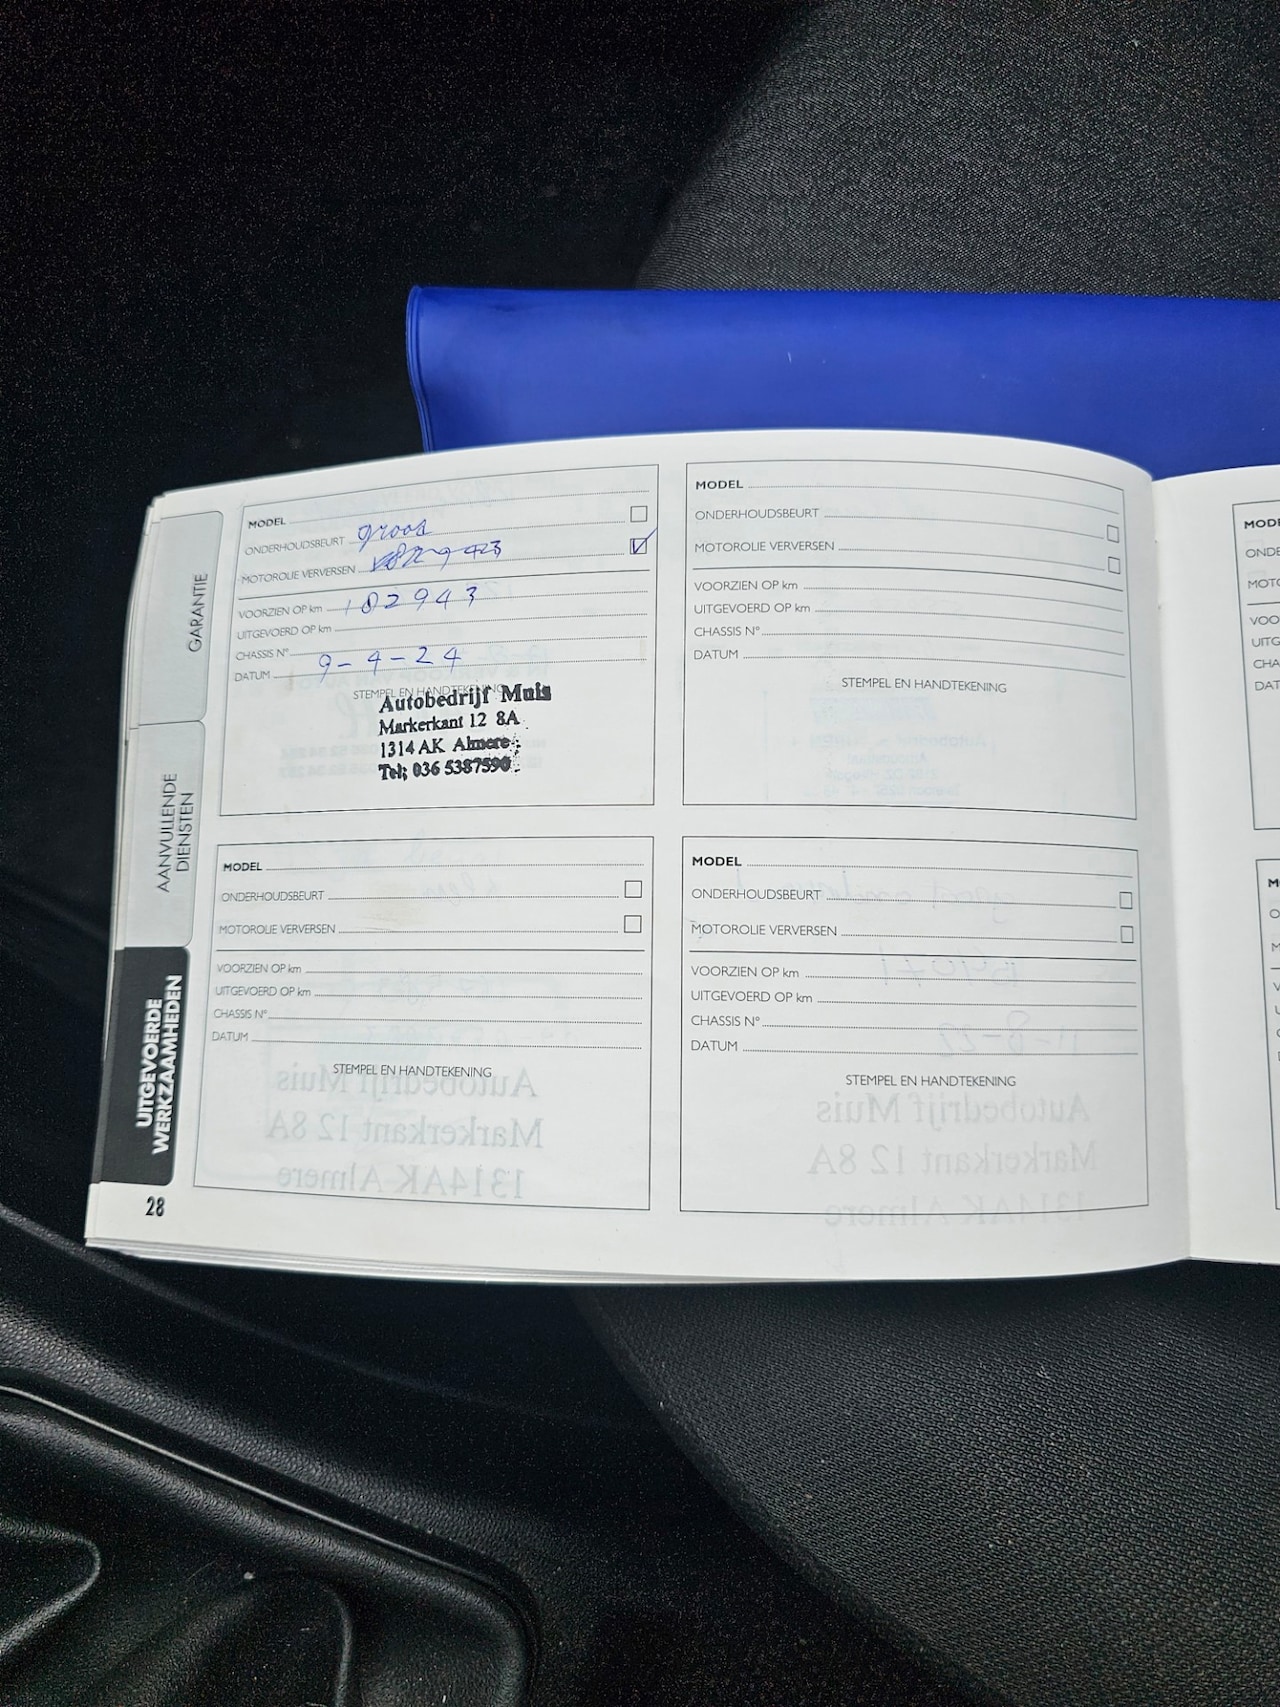 GARANTIE
AANVULLENDE
DIENSTEN
UITGEVOERDE
WERKZAAMHEDEN
28
MODEL
ONDERHOUDSBEURT groos
MOTOROLIE VERVERSEN
VOORZIEN OP km 182943
UITGEVOERD OP km
CHASSIS N°
DATUM 9-4-24
STEMPEL EN HANDTEKENING
Autobedrijf Muis
Markerkant 12 8A
1314 AK Almere
Tel; 036 5387590
MODEL
ONDERHOUDSBEURT
MOTOROLIE VERVERSEN
VOORZIEN OP km
UITGEVOERD OP km
CHASSIS N°
DATUM
STEMPEL EN HANDTEKENING
MODEL
ONDERHOUDSBEURT
MOTOROLIE VERVERSEN
VOORZIEN OP km
UITGEVOERD OP km
CHASSIS N°
DATUM
STEMPEL EN HANDTEKENING
Autobedrijf Muis
Markerkant 12 8A
1314AK Almere
MODEL
ONDERHOUDSBEURT
MOTOROLIE VERVERSEN
VOORZIEN OP km
UITGEVOERD OP km
CHASSIS N°
DATUM
STEMPEL EN HANDTEKENING
11-8-22
Autobedrijf Muis
Markerkant 12 8A
1314AK Almere